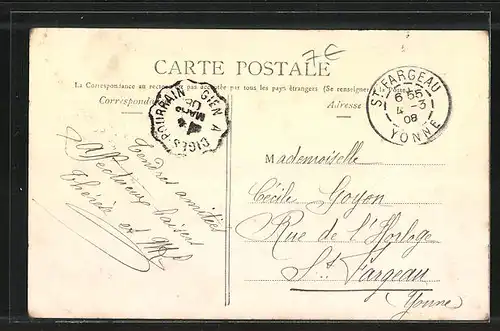 7€
CARTE POSTALE
La Correspondance au recto pas acceptée par tous les pays étrangers (Se renseigner à la Poste)
Correspondance
Adresse
GIEN A DIGES-POURRAIN
4
MARS
08
ST FARGEAU
6 55
4 -3
08
YONNE
Tendres amitiés
affectueux baisers
Thérèse et
Mademoiselle
Cécile Goyon
Rue de l'Horloge
St. Fargeau
Yonne